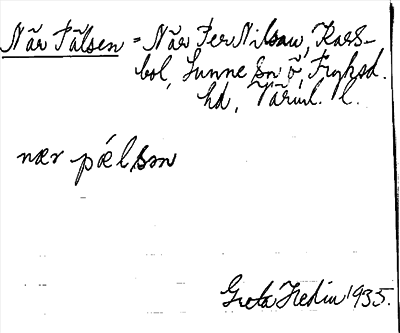 När Pälsen = När Per Nilsaw, Kars-
bol, Sunne sn ö, Fryksd.
hd, Värml. l.
nær pǽlsɷn
Greta Hedin 1935.